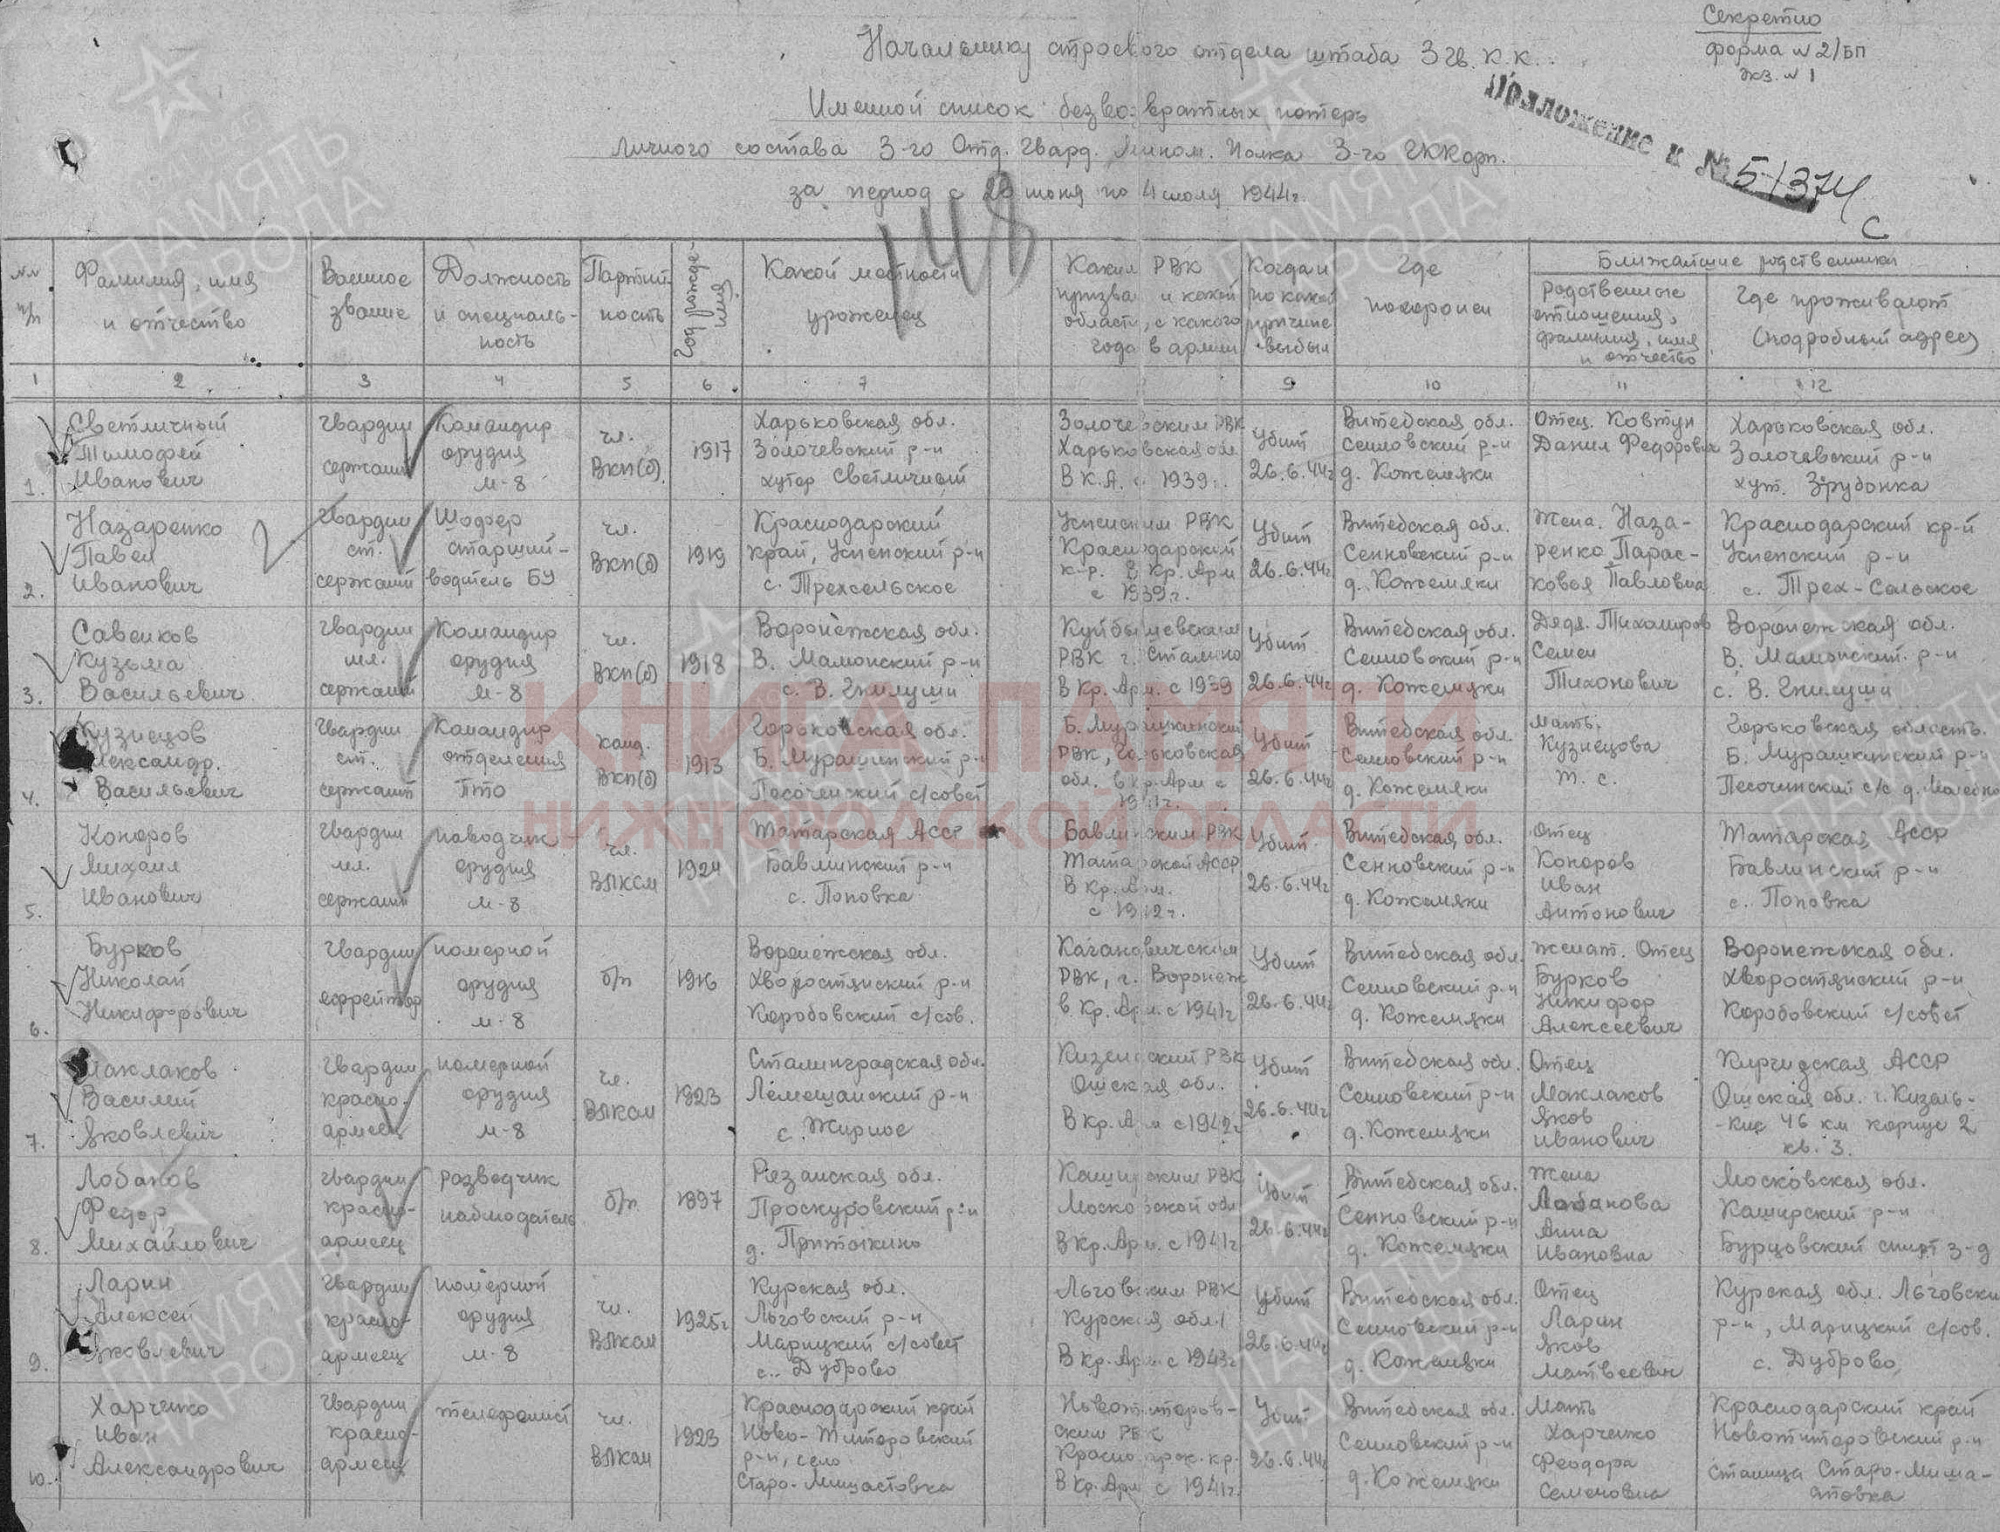 Секретно
форма № 2/БП
экз. № 1
Начальнику строевого отдела штаба 3 гв. К.К.
Именной список безвозвратных потерь
личного состава 3-го Отд. Гвард. Мином. Полка 3-го ГККорп.
за период с 20 июня по 4 июля 1944г.
Приложение к № 51374с
148
№№ п/п
Фамилия, имя и отчество
Военное звание
Должность и специальность
Партийность
Год рождения
Какой местности уроженец
Каким РВК призван и какой области, с какого года в армии
Когда и по какой причине выбыл
Где похоронен
Ближайшие родственники
Родственные отношения, фамилия, имя и отчество
Где проживают (подробный адрес)
1 2 3 4 5 6 7 9 10 11 12
1. Светличный Тимофей Иванович
Гвардии сержант
Командир орудия М-8
чл. ВКП(б)
1917
Харьковская обл. Золочевский р-н хутор Светличный
Золочевским РВК Харьковская обл В К.А. с 1939г.
Убит 26.6.44г
Витебская обл. Сенновский р-н д. Кожемяки
Отец. Ковтун Данил Федорович
Харьковская обл. Золочевский р-н хут. Зрубонка
2. Назаренко Павел Иванович
Гвардии ст. сержант
Шофер старший-водитель БУ
чл. ВКП(б)
1919
Краснодарский край, Успенский р-н с. Трехсельское
Успенским РВК Краснодарский к-р. в Кр. Арм с 1939г.
Убит 26.6.44г
Витебская обл. Сенновский р-н д. Кожемяки
Жена. Назаренко Парасковья Павловна
Краснодарский кр-й Успенский р-н с. Трех-Сельское
3. Савенков Кузьма Васильевич
Гвардии мл. сержант
Командир орудия М-8
чл. ВКП(б)
1918
Воронежская обл. В. Мамонский р-н с. В. Гнилуши
Куйбышевским РВК г. Сталино В Кр. Арм. с 1939
Убит 26.6.44г
Витебская обл. Сенновский р-н д. Кожемяки
Дядя. Тихомиров Семен Тихонович
Воронежская обл. В. Мамонский р-н с. В. Гнилуши
4. Кузнецов Александр. Васильевич
Гвардии ст. сержант
Командир отделения ПТО
канд. ВКП(б)
1913
Горьковская обл. Б. Мурашкинский р-н Песоченский с/совет
Б. Мурашкинский РВК, Горьковская обл. в Кр. Арм с 1941г.
Убит 26.6.44г
Витебская обл. Сенновский р-н д. Кожемяки
Мать. Кузнецова Т. С.
Горьковская область. Б. Мурашкинский р-н Песочинский с/с д.
5. Коноров Михаил Иванович
Гвардии мл. сержант
наводчик орудия М-8
чл. ВЛКСМ
1924
Татарская АССР Бавлинский р-н с. Поповка
Бавлинским РВК Татарской АССР В Кр. Арм. с 1942г.
Убит 26.6.44г
Витебская обл. Сенновский р-н д. Кожемяки
Отец Коноров Иван Антонович
Татарская АССР Бавлинский р-н с. Поповка
6. Бурков Николай Никифорович
Гвардии ефрейтор
номерной орудия М-8
б/п
1916
Воронежская обл. Хворостянский р-н Коробовский с/сов.
Кагановичским РВК, г. Воронеж в Кр. Арм. с 1941г
Убит 26.6.44г
Витебская обл. Сенновский р-н д. Кожемяки
женат. Отец Бурков Никифор Алексеевич
Воронежская обл. Хворостянский р-н Коробовский с/совет
7. Маклаков Василий Яковлевич
Гвардии красноармеец
номерной орудия М-8
чл. ВЛКСМ
1923
Сталинградская обл. Лемешанский р-н с. Жирное
РВК Ошская обл. В Кр. Арм с 1942г
Убит 26.6.44г
Витебская обл. Сенновский р-н д. Кожемяки
Отец Маклаков Яков Иванович
Киргидская АССР Ошская обл. г. Кизель-Кие 46 км корпус 2 кв. 3.
8. Лобанов Федор Михайлович
Гвардии красноармеец
разведчик наблюдатель
б/п
1897
Рязанская обл. Проскуровский р-н д. Притыкино
Каширским РВК Московской обл В Кр. Арм. с 1941г
Убит 26.6.44г
Витебская обл. Сенновский р-н д. Кожемяки
Жена Лобанова Анна Ивановна
Московская обл. Каширский р-н Бурцовский спирт з-д
9. Ларин Алексей Яковлевич
Гвардии красноармеец
номерной орудия М-8
чл. ВЛКСМ
1925г
Курская обл. Льговский р-н Марицкий с/совет с. Дуброво
Льговским РВК Курская обл. В Кр. Арм с 1943г
Убит 26.6.44г
Витебская обл. Сенновский р-н д. Кожемяки
Отец Ларин Яков Матвеевич
Курская обл. Льговский р-н, Марицкий с/сов. с. Дуброво,
10. Харченко Иван Александрович
Гвардии красноармеец
телефонист
чл. ВЛКСМ
1923
Краснодарский край Ново-Титоровский р-н, село Старо-Мишастовка
Новотиторовским РВК Краснодарск. кр. В Кр. Арм с 1941г.
Убит 26.6.44г
Витебская обл. Сенновский р-н д. Кожемяки
Мать Харченко Феодора Семеновна
Краснодарский край Новотитаровский р-н станица Старо-Мишастовка
КНИГА ПАМЯТИ
НИЖЕГОРОДСКОЙ ОБЛАСТИ
ПАМЯТЬ НАРОДА